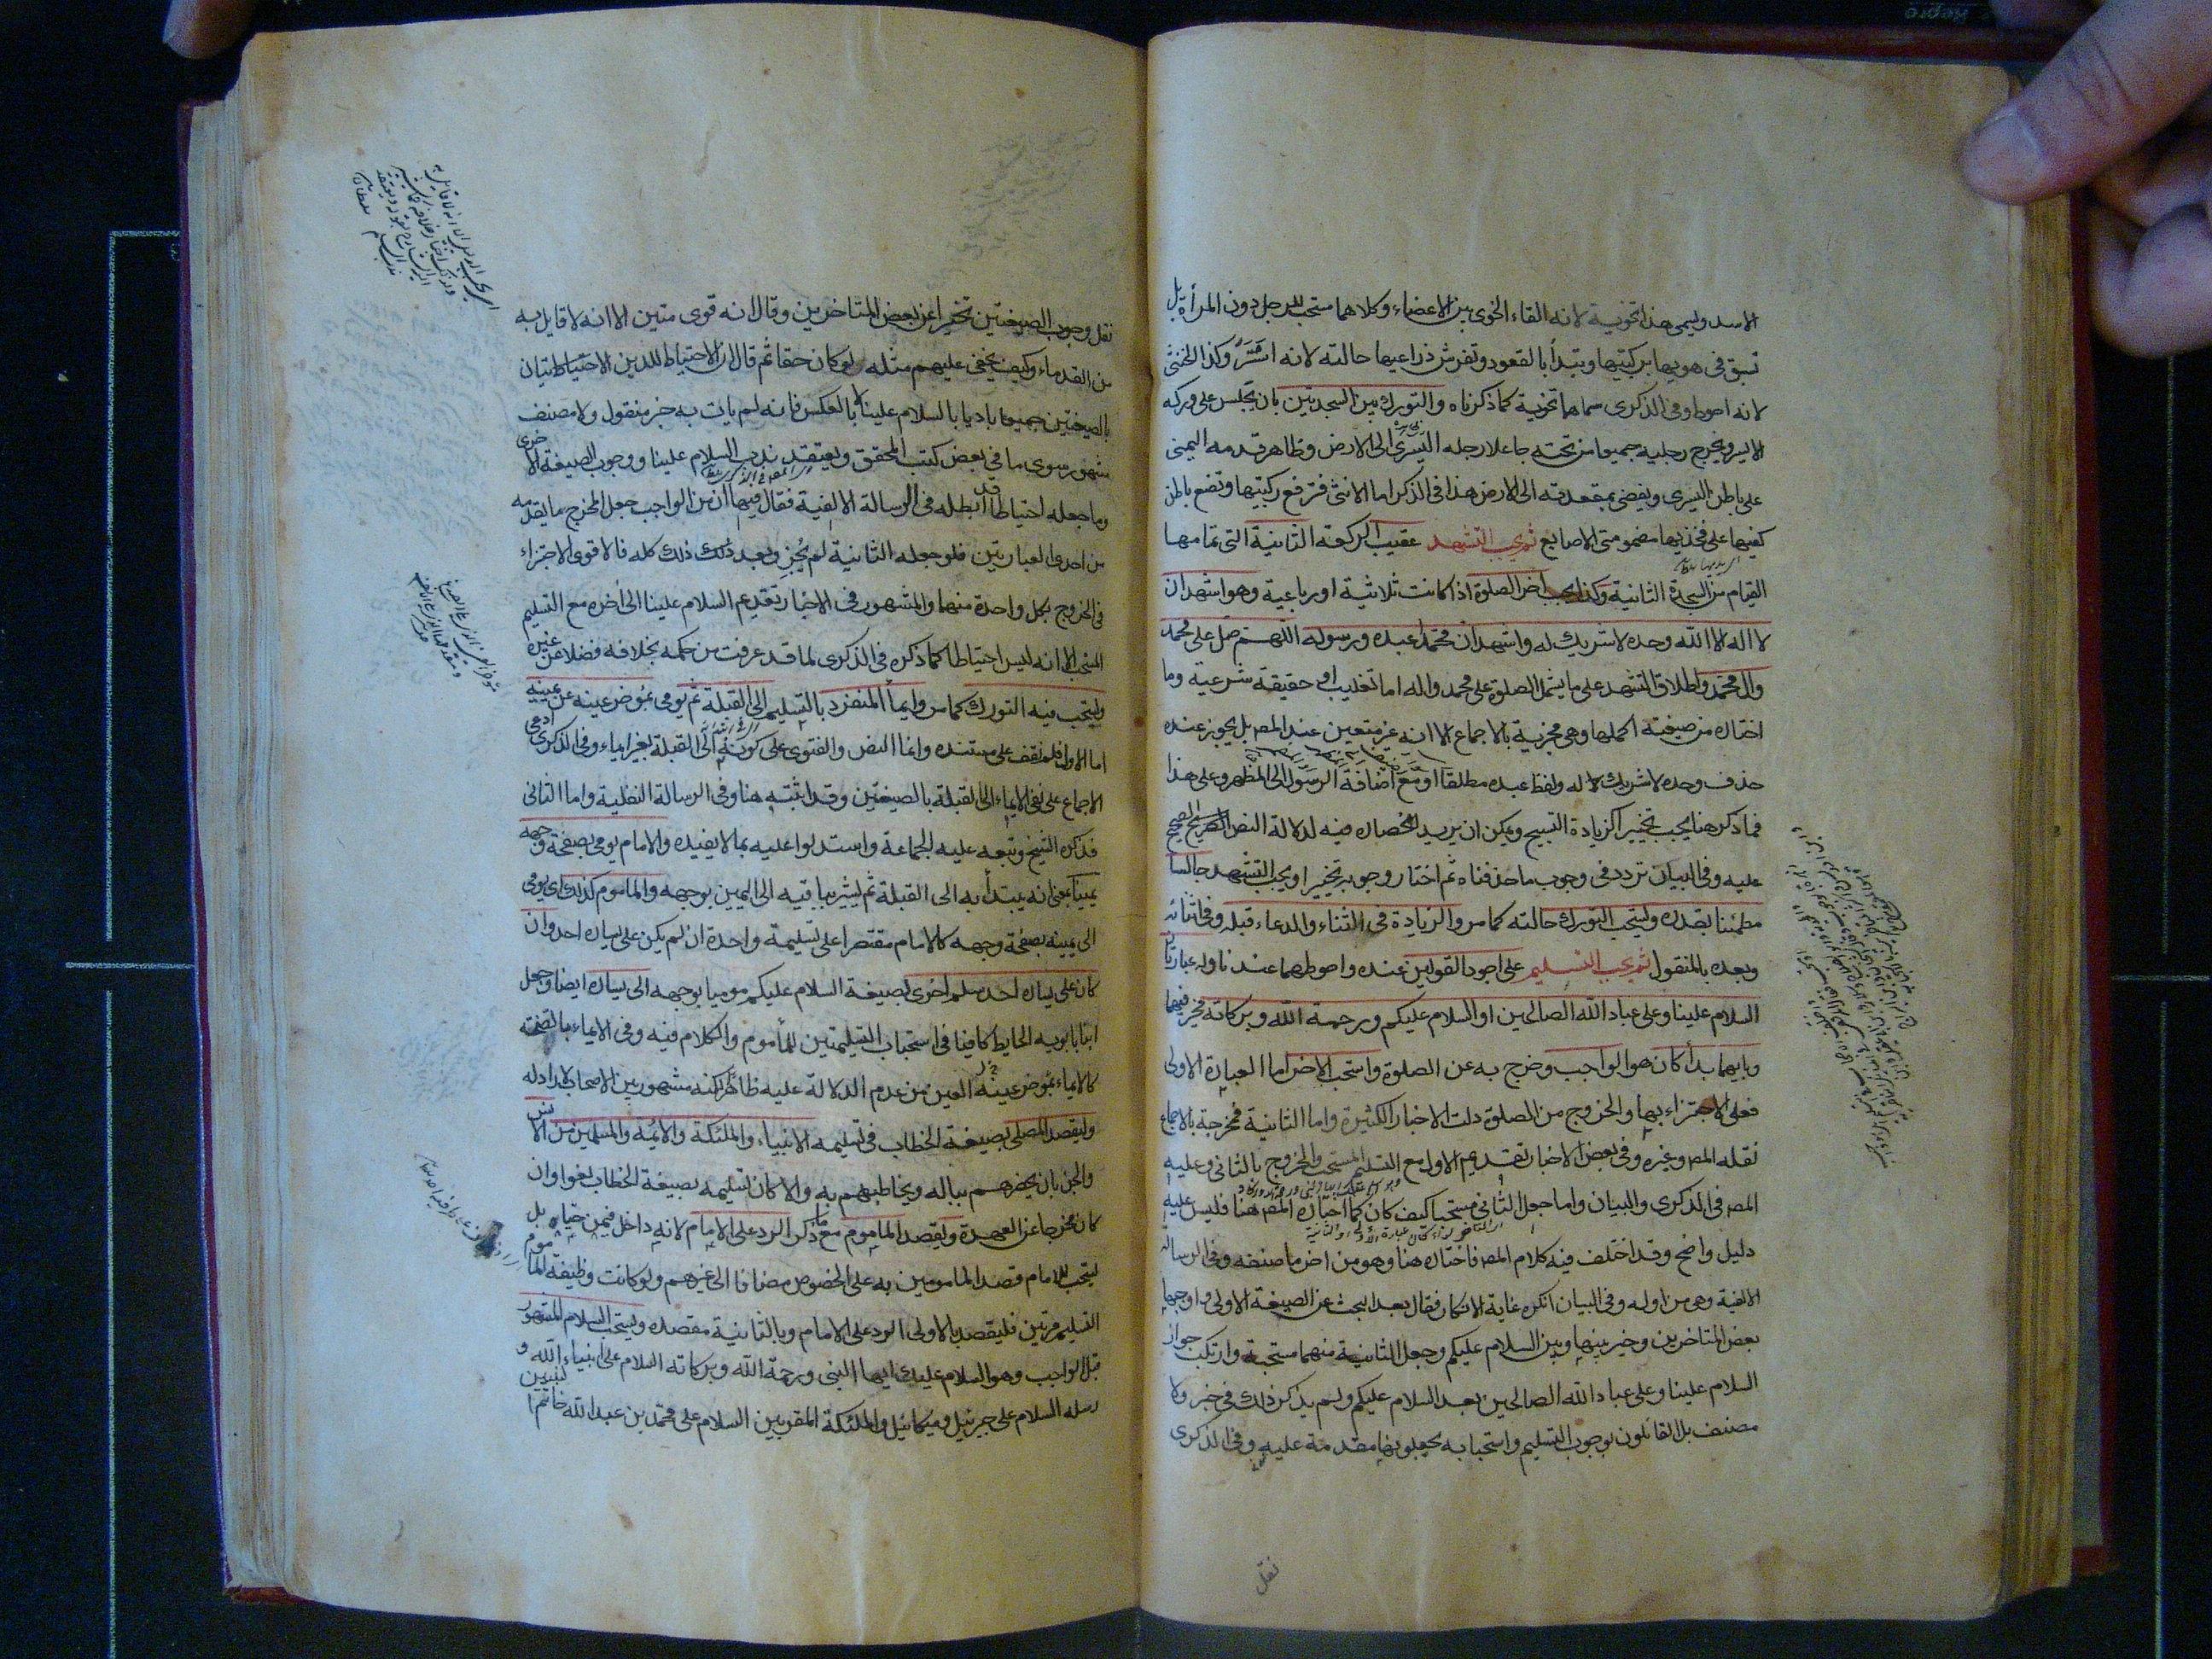 الاسد ويسمى هذا تخوية لانه القاء الخوى بين الاعضاء وكلاهما مستحب للرجل دون المرأة بل
تسبق في هويها بركبتيها وتبدأ بالقعود وتفرش ذراعيها حالته لانه استر وكذا الخنثى
لانه احوط وفي الذكرى سماهما تخوية كما ذكرناه والتورك بين السجدتين بان يجلس على وركه
الايسر ويخرج رجليه جميعا من تحته جاعلا رجله اليسرى الى الارض وظاهر قدمه اليمنى
على باطن اليسرى ويفضي بمقعدته الى الارض هذا في الذكر اما الانثى فترفع ركبتيها وتضع باطن
كفيها على فخذيها مضمومتي الاصابع ثم يجب التشهد عقيب الركعة الثانية التي تمامها
القيام من السجدة الثانية وكذا يجب اخر الصلوة اذا كانت ثلاثية او رباعية وهو اشهد ان
لا اله الا الله وحده لا شريك له واشهد ان محمدا عبده ورسوله اللهم صل على محمد
وال محمد واطلاق التشهد على ما يشمل الصلوة على محمد واله اما تغليب او حقيقة شرعية وما
اختاره من صيغته اكملها وهي مجزية بالاجماع الا انه غير متعين عند المص بل يجوز عنده
حذف وحده لا شريك له ولفظ عبده مطلقا او مع اضافة الرسول الى المظهر وعلى هذا
فما ذكر هنا يجب تخييرا كزيادة التسبيح ويمكن ان يريد انحصاره فيه لدلالة النص الصحيح
عليه وفي البيان تردد في وجوب ما حذفناه ثم اختار وجوبه تخييرا ويجب التشهد جالسا
مطمئنا بقدره ويستحب التورك حالته كما مر والزيادة في الثناء والدعاء قبله وفي اثنائه
وبعده بالمنقول ثم يجب التسليم على اجود القولين عنده واحوطهما عندنا وله عبارتان
السلام علينا وعلى عباد الله الصالحين او السلام عليكم ورحمة الله وبركاته مخير فيهما
وبايهما بدأ كان هو الواجب وخرج به عن الصلوة واستحب الاخر اما العبارة الاولى
فعلى الاجتزاء بها والخروج من الصلوة دلت الاخبار الكثيرة واما الثانية فمخرجة بالاجماع
نقله المص وغيره وفي بعض الاخبار تقديم الاول مع التسليم المستحب والخروج بالثاني وعليه
المص في الذكرى والبيان واما جعل الثاني مستحبا كيف كان كما اختاره المص هنا فليس عليه
دليل واضح وقد اختلف فيه كلام المص فاختاره هنا وهو من اخر ما صنفه وفي الرسالة
الالفية وهي من اوله وفي البيان انكره غاية الانكار فقال بعد البحث عن الصيغة الاولى واوجبها
بعض المتاخرين وخير بينها وبين السلام عليكم وجعل الثانية منهما مستحبة وارتكب جواز
السلام علينا وعلى عباد الله الصالحين بعد السلام عليكم ولم يذكر ذلك في خبر ولا
مصنف بل القائلون بوجوب التسليم واستحبابه يجعلونها مقدمة عليه وفي الذكرى
نقل
نقل وجوب الصيغتين تخييرا عن بعض المتاخرين وقال انه قوى متين الا انه لا قايل به
من القدماء وكيف يخفى عليهم مثله لو كان حقا ثم قال ان الاحتياط للدين الاتيان
بالصيغتين جميعا باديا بالسلام علينا لا بالعكس فانه لم يات به خبر منقول ولا مصنف
مشهور سوى ما في بعض كتب المحقق ويعتقد ندب السلام علينا ووجوب الصيغة الاخرى
وما جعله احتياطا قد ابطله في الرسالة الالفية فقال فيها ان من الواجب جعل المخرج ما يقدمه
من احدى العبارتين فلو جعله الثانية لم يجز وبعد ذلك كله فالاقوى الاجتزاء
في الخروج بكل واحدة منهما والمشهور في الاخبار تقديم السلام علينا الى اخره مع التسليم
المستحب الا انه ليس احتياطا كما ذكره في الذكرى لما قد عرفت من حكمه بخلافه فضلا عن غيره
ويستحب فيه التورك كما مر وايماء المنفرد بالتسليم الى القبلة ثم يومى بمؤخر عينه عن يمينه
اما الاول فلم نقف على مستنده وانما النص والفتوى على كونه الى القبلة بغير ايماء وفي الذكرى ادعى
الاجماع على نفى الايماء الى القبلة بالصيغتين وقد اثبته هنا وفي الرسالة النفلية واما الثاني
فذكره الشيخ وتبعه عليه الجماعة واستدلوا عليه بما لا يفيده والامام يومى بصفحة وجهه
يمينا بمعنى انه يبتدأ به الى القبلة ثم يشير بباقيه الى اليمين بوجهه والماموم كذلك اى يومى
الى يمينه بصفحة وجهه كالامام مقتصرا على تسليمة واحدة ان لم يكن على يساره احد وان
كان على يساره احد سلم اخرى بصيغة السلام عليكم موميا بوجهه الى يساره ايضا وجعل
ابنا بابويه الحايط كافيا في استحباب التسليمتين للمأموم والكلام فيه وفي الايماء بالصفحة
كالايماء بمؤخر العين من عدم الدلالة عليه ظاهرا لكنه مشهور بين الاصحاب لا راد له
وليقصد المصلى بصيغة الخطاب في تسليمه الانبياء والملئكة والائمة والمسلمين من الانس
والجن بان يحضرهم بباله ويخاطبهم به والا كان تسليمه بصيغة الخطاب لغوا وان
كان مخرجا عن العهدة ويقصد الماموم مع ما ذكر الرد على الامام لانه داخل فيمن حياه بل
يستحب للامام قصد المامومين به على الخصوص مضافا الى غيرهم ولو كانت وظيفة الماموم
التسليم مرتين فليقصد بالاولى الرد على الامام وبالثانية مقصده ويستحب السلام المشهور
قبل الواجب وهو السلام عليك ايها النبى ورحمة الله وبركاته السلام على انبياء الله و
رسله السلام على جبرئيل وميكائيل والملئكة المقربين السلام على محمد بن عبد الله خاتم النبيين